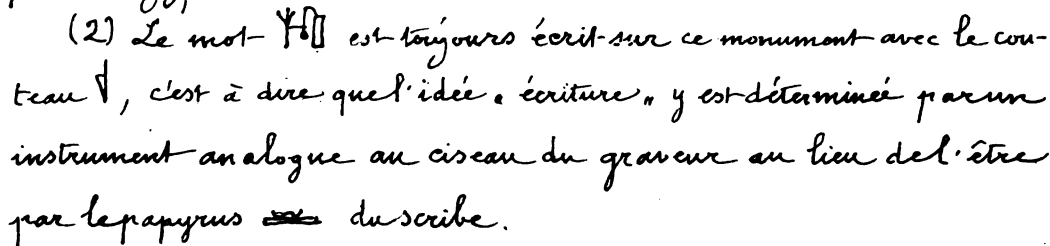 (2) Le mot est toujours écrit sur ce monument avec le cou-
teau, c'est à dire que l'idée « écriture » y est déterminée par un
instrument analogue au ciseau du graveur au lieu de l'être
par le papyrus du scribe.